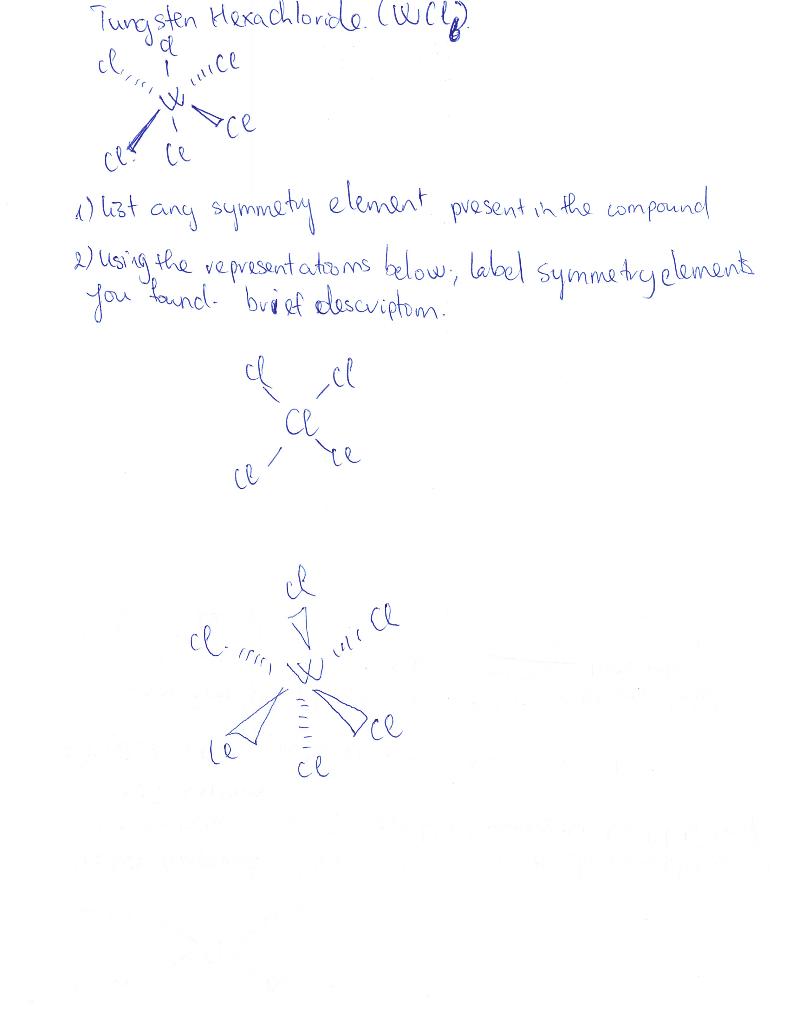 Tungsten Hexachloride. (WCl6).
Cl
Cl Cl
W
Cl
Cl Cl
1) List any symmetry element present in the compound
2) Using the representations below, label symmetry elements
you found. brief description.
Cl Cl
Cl
Cl Cl
Cl
Cl Cl
W
Cl Cl
Cl